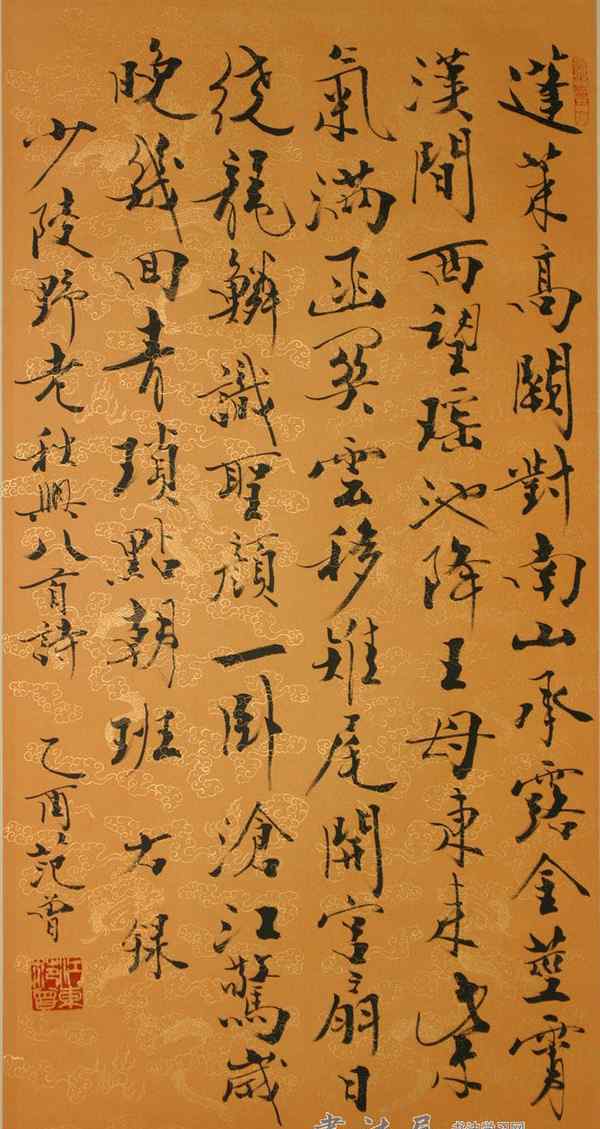 蓬莱高闕對南山承露金莖霄
漢間西望瑶池降王母東来紫
氣滿函関雲移雉尾開宫扇日
繞龍鱗識聖顔一卧滄江驚歲
晚幾回青瑣點朝班 右録
少陵野老秋興八首詩 乙酉范曾
江東范曾
书法学习网